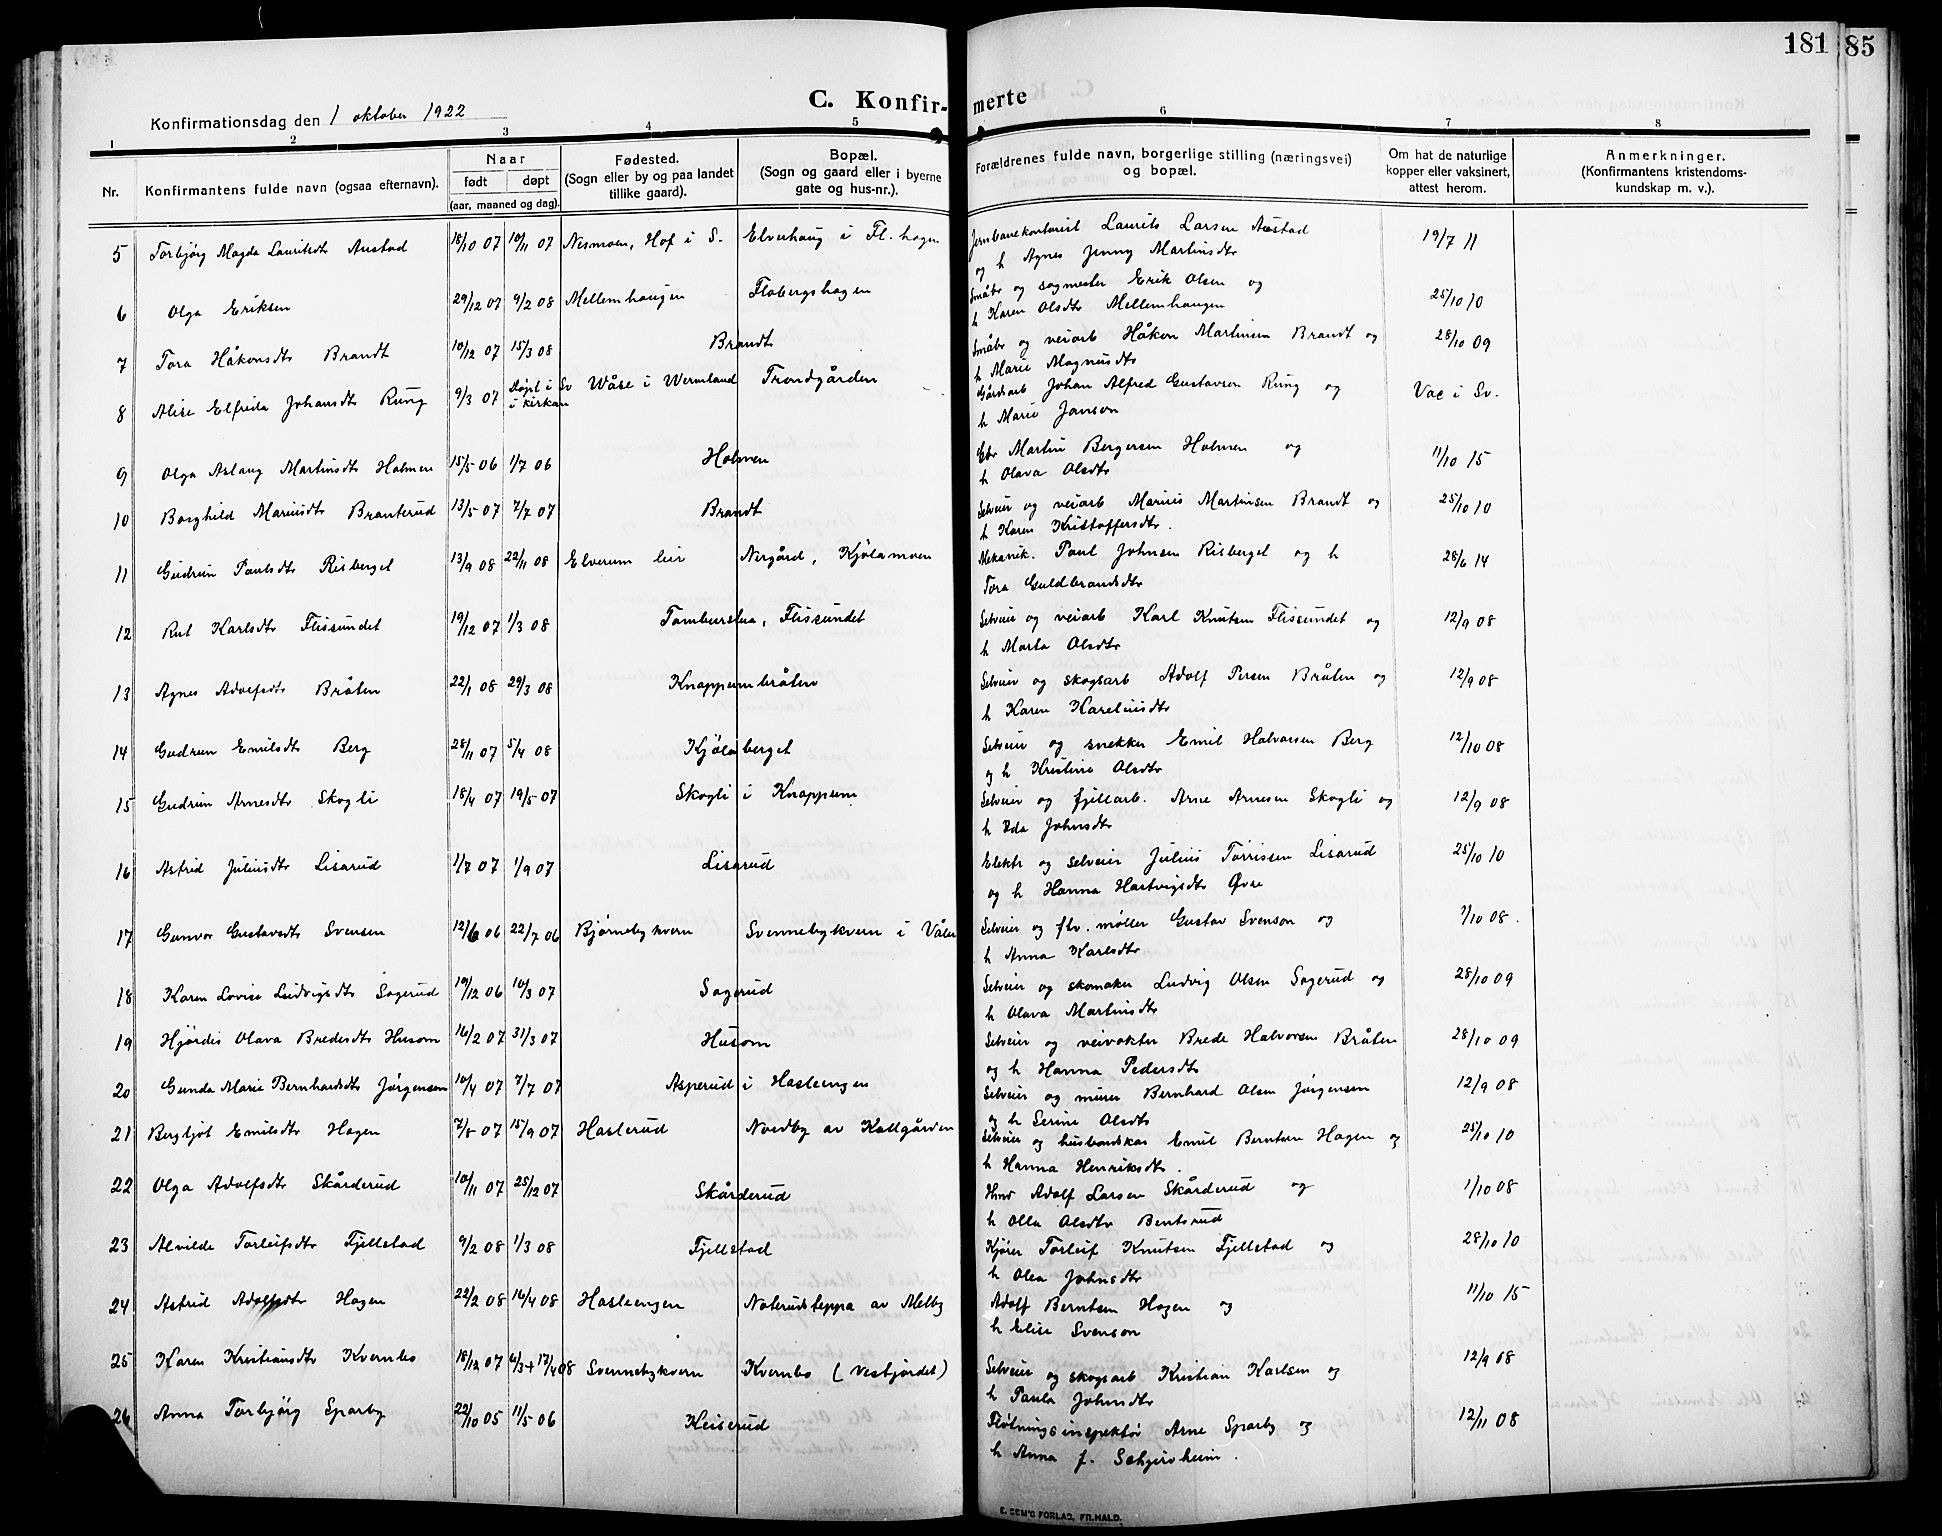 181
85
C. Konfir-
merte
Konfirmationsdag den 1 oktober 1922
1 2 3 4 5 6 7 8
Nr.
Konfirmantens fulde navn (ogsaa efternavn).
Naar
født
døpt
(aar, maaned og dag).
Fødested.
(Sogn eller by og paa landet
tillike gaard).
Bopæl.
(Sogn og gaard eller i byerne
gate og hus-nr.).
Forældrenes fulde navn, borgerlige stilling (næringsvei)
og bopæl.
Om hat de naturlige
kopper eller vaksinert,
attest herom.
Anmerkninger.
(Konfirmantens kristendoms-
kundskap m. v.).
5 Torbjørg Magda Lauritsdtr Austad 18/10 07 10/11 07 Nesmoen, Hof i S. Elverhaug i Fl. hagen Jernbanekontorist Laurits Larsen Austad 19/7 11
og h Agnes Jenny Martinsdtr
6 Olga Eriksen 29/12 07 9/2 08 Mellemhaugen Flobergshagen Småbr og sagmester Erik Olsen og 25/10 10
h Karen Olsdtr Mellemhaugen
7 Tora Håkonsdtr Brandt 10/12 07 15/3 08 Brandt Småbr og veiarb Håkon Martinsen Brandt og 28/10 09
h Marie Magnusdtr
8 Alise Elfrida Johansdtr Rung 9/3 07 døpt i Sv i kirkan Wåse i Wermland Trondgården Gårdsarb Johan Alfred Gustavson Rung og Vac i Sv.
h Marie Janson
9 Olga Aslaug Martinsdtr Holmen 15/5 06 1/7 06 Holmen Gbr Martin Bergersen Holmen og 11/10 15
h Olava Olsdtr
10 Borghild Mariusdtr Branterud 13/5 07 7/7 07 Brandt Selveier og veiarb Marius Martinsen Brandt og 25/10 10
h Karen Kristoffersdtr.
11 Gudrun Paulsdtr Risberget 13/9 08 22/11 08 Elverum leir Nergård, Kjølamoen Mekanik. Paul Johnsen Risberget og h 28/6 14
Tora Guldbrandsdtr
12 Rut Karlsdtr Flissundet 19/12 07 1/3 08 Tamburslua, Flissundet Selveier og veiarb Karl Knutsen Flissundet og 12/9 08
h Marta Olsdtr
13 Agnes Adolfsdtr Bråten 22/1 08 29/3 08 Knappumbråten Selveier og skogsarb Adolf Persen Bråten og 12/9 08
h Karen Kareliusdtr
14 Gudrun Emilsdtr Berg 28/11 07 5/4 08 Kjølaberget Selveier og snekker Emil Halvorsen Berg 12/10 08
og h Kristine Olsdtr
15 Gudrun Arnesdtr Skogli 18/4 07 19/5 07 Skogli i Knappum Selveier og fjellarb. Arne Arnesen Skogli og 12/9 08
h Ida Johnsdtr
16 Astrid Juliusdtr Lisarud 1/7 07 1/9 07 Lisarud Elektr og selveier Julius Torrissen Lisarud 25/10 10
og h Hanna Hartvigsdtr Øvre
17 Gunvor Gustavsdtr Svensen 12/6 06 22/7 06 Bjørnebykvern Svennebykvern i Våler Selveier og fhv. møller Gustav Svenson og 1/10 08.
h Anna Karlsdtr
18 Karen Lovise Ludvigsdtr Sagerud 19/12 06 10/3 07 Sagerud Selveier og skomaker Ludvig Olsen Sagerud og 28/10 09
h Olava Martinsdtr
19 Hjørdis Olava Bredesdtr Husom 16/2 07 31/3 07 Husom Selveier og veivokter Brede Halvorsen Bråten 28/10 09
og h Hanna Pedersdtr
20 Gunda Marie Bernhardsdtr Jørgensen 10/4 07 7/7 07 Asperud i Hasleengen Selveier og murer Bernhard Olsen Jørgensen 12/9 08
og h Serine Olsdtr
21 Bergljot Emilsdtr Hagen 7/8 07 15/9 07 Haslerud Nordby av Kallgården Selveier og husbondskar Emil Berntsen Hagen og 25/10 10
h Hanna Henriksdtr.
22 Olga Adolfsdtr Skårderud 10/11 07 25/12 07 Skårderud Hmd Adolf Larsen Skårderud og 1/10 08
h Olla Olsdtr Bentsrud
23 Alvilde Torleifsdtr Fjellstad 9/2 08 1/3 08 Fjellstad Kjører Torleif Knutsen Fjellstad og 28/10 10
h Olea Johnsdtr
24 Astrid Adolfsdtr Hagen 22/2 08 16/4 08 Hasleengen Noterudsteppa av Melby Adolf Berntsen Hagen og 11/10 15
h Elise Svenson
25 Karen Kristiansdtr Kvernbo 18/12 07 6/3 + 17/4 08 Svennebykvern Kvernbo (Vesfjordet) Selveier og skogsarb Kristian Karlsen og 12/9 08
h Paula Johnsdtr
26 Anna Torbjørg Sparby 22/10 05 11/5 06 Keiserud Fløtningsinspektør Arne Sparby og 12/11 08
h Anna f.
E. SEM'S FORLAG, FR.HALD.